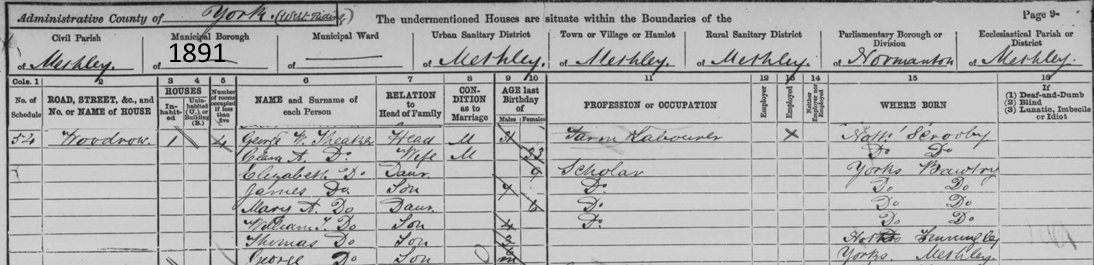 Administrative County of York (West Riding) The undermentioned Houses are situate within the Boundaries of the Page 9
Civil Parish Municipal Borough Municipal Ward Urban Sanitary District Town or Village or Hamlet Rural Sanitary District Parliamentary Borough or Division Ecclesiastical Parish or District
of Methley. of 1891 of of Methley. of Methley. of Methley. of Normanton of Methley.
Cols. 1 2 3 4 5 6 7 8 9 10 11 12 13 14 15 16
No. of Schedule ROAD, STREET, &c., and No. or NAME of HOUSE HOUSES Inhabited Uninhabited (U.), or Building (B.) Number of rooms occupied if less than five NAME and Surname of each Person RELATION to Head of Family CONDITION as to Marriage AGE last Birthday of Males Females PROFESSION or OCCUPATION Employer Employed Neither Employer nor Employed WHERE BORN If (1) Deaf-and-Dumb (2) Blind (3) Lunatic, Imbecile or Idiot
54 Woodrow. 1 4 George W. Theaker Head M Farm Labourer X Notts Scrooby
Clara A. Do. Wife M 33 Do Do
Elizabeth Do Daur. 9 Scholar Yorks Bawtry
James Do. Son Do. Do Do
Mary A. Do Daur. 6 Do. Do Do
William T. Do Son 4 Do. Do Do
Thomas Do Son 2 Notts Finningley
George Do Son Yorks Methley